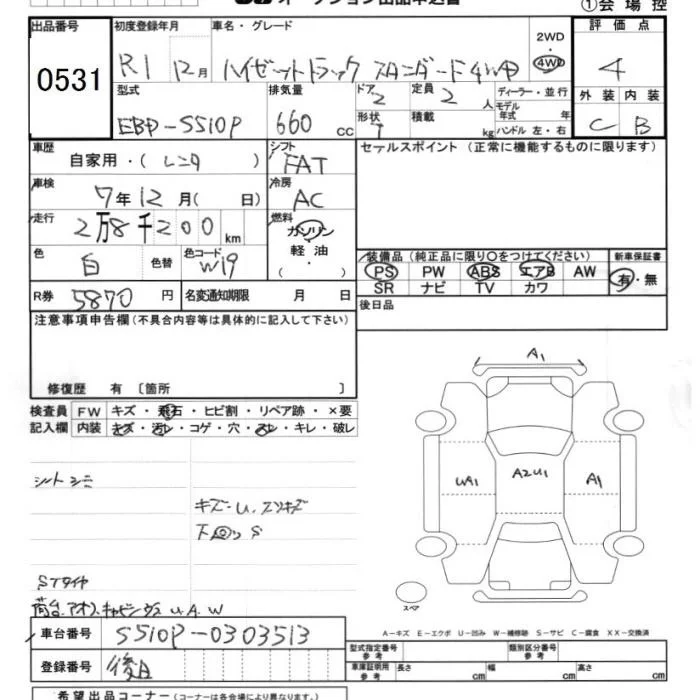 オークション出品申込書
①会場控
出品番号 初度登録年月 車名・グレード 2WD・4WD 評価点
0531 R1 12月 ハイゼットトラック スタンダード4WD 4
型式 排気量 ドア 定員 ディーラー・並行 外装 内装
EBD-S510P 660 CC 2 2 人 モデル年式 年 C B
形状 積載 kg ハンドル 左・右
車歴 シフト セールスポイント(正常に機能するものに限ります)
自家用・(レンタ) FAT
車検 冷房
7年12月( 日) AC
走行 燃料
2万8千200km ガソリン・軽油・( )
色 色替 色コード 装備品(純正品に限り○をつけてください) 新車保証書
白 W19 PS PW ABS エアB AW 有・無
SR ナビ TV カワ
R券 5870円 名変通知期限 月 日 後日品
注意事項申告欄(不具合内容等は具体的に記入して下さい)
修復歴 有〔箇所 〕
検査員 FW キズ・飛石・ヒビ割・リペア跡・×要
記入欄 内装 キズ・汚レ・コゲ・穴・スレ・キレ・破レ
A1
UA1 A2U1 A1
シートシミ
キズ・U、スリキズ
下回りS
STタイヤ
荷台、アオリ、キャビンウラU、A、W
スペア
A-キズ E-エクボ U-凹み W-補修跡 S-サビ C-腐食 XX-交換済
車台番号 S510P-0303513
型式指定番号 参考 類別区分番号 参考
登録番号 後日
車庫証明用 参考 長さ cm 幅 cm 高さ cm
希望出品コーナー(コーナーは各会場により異なります。)